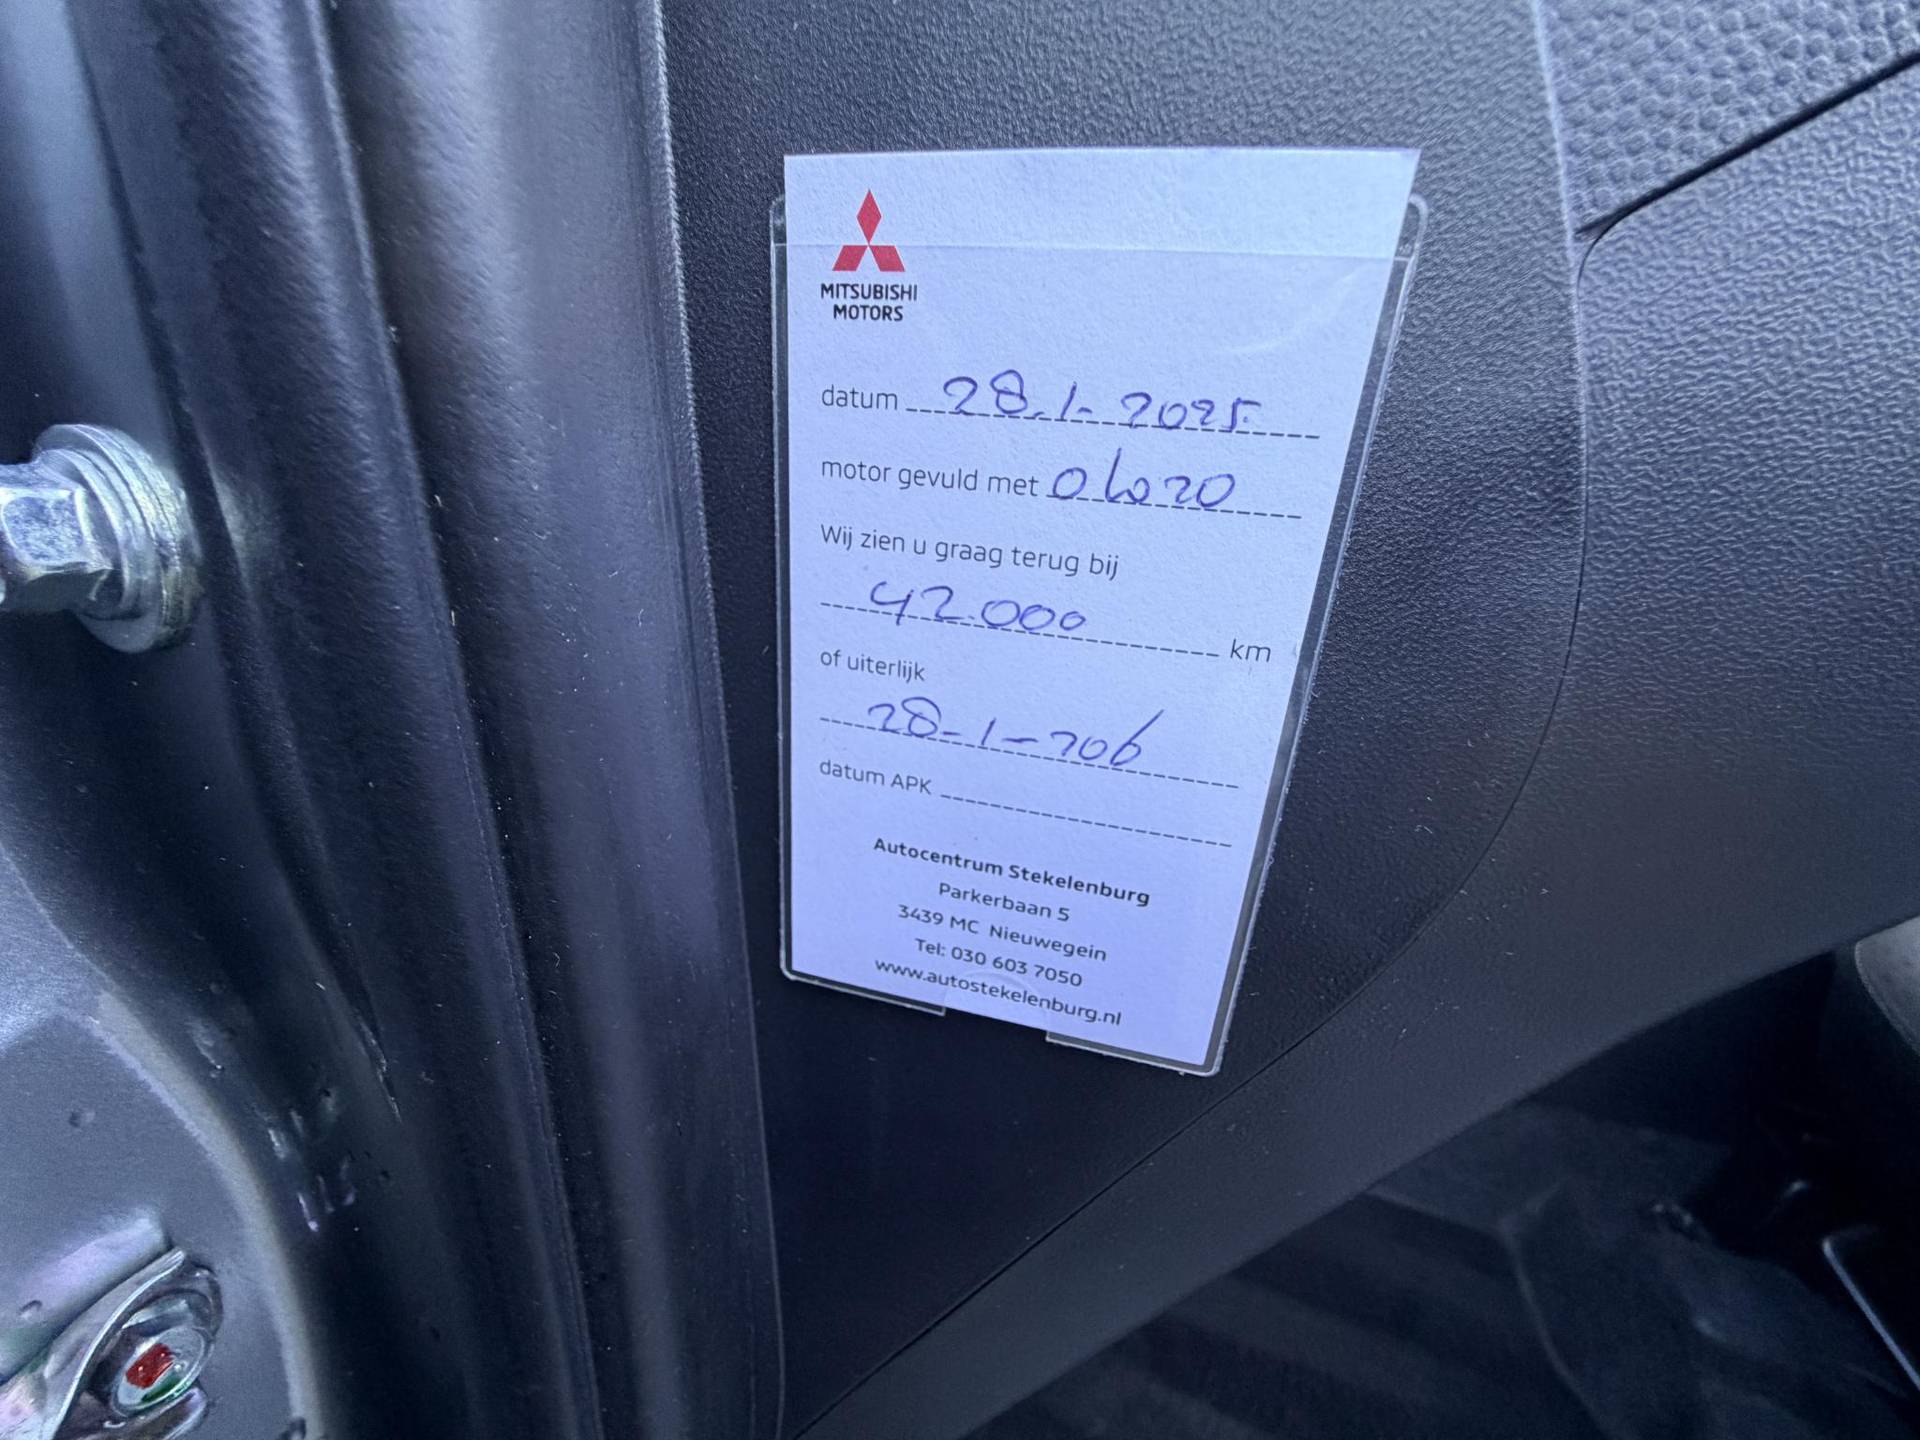 MITSUBISHI
MOTORS
datum 28.1-2025.
motor gevuld met 0w20
Wij zien u graag terug bij
42.000 km
of uiterlijk
28-1-206
datum APK
Autocentrum Stekelenburg
Parkerbaan 5
3439 MC Nieuwegein
Tel: 030 603 7050
www.autostekelenburg.nl